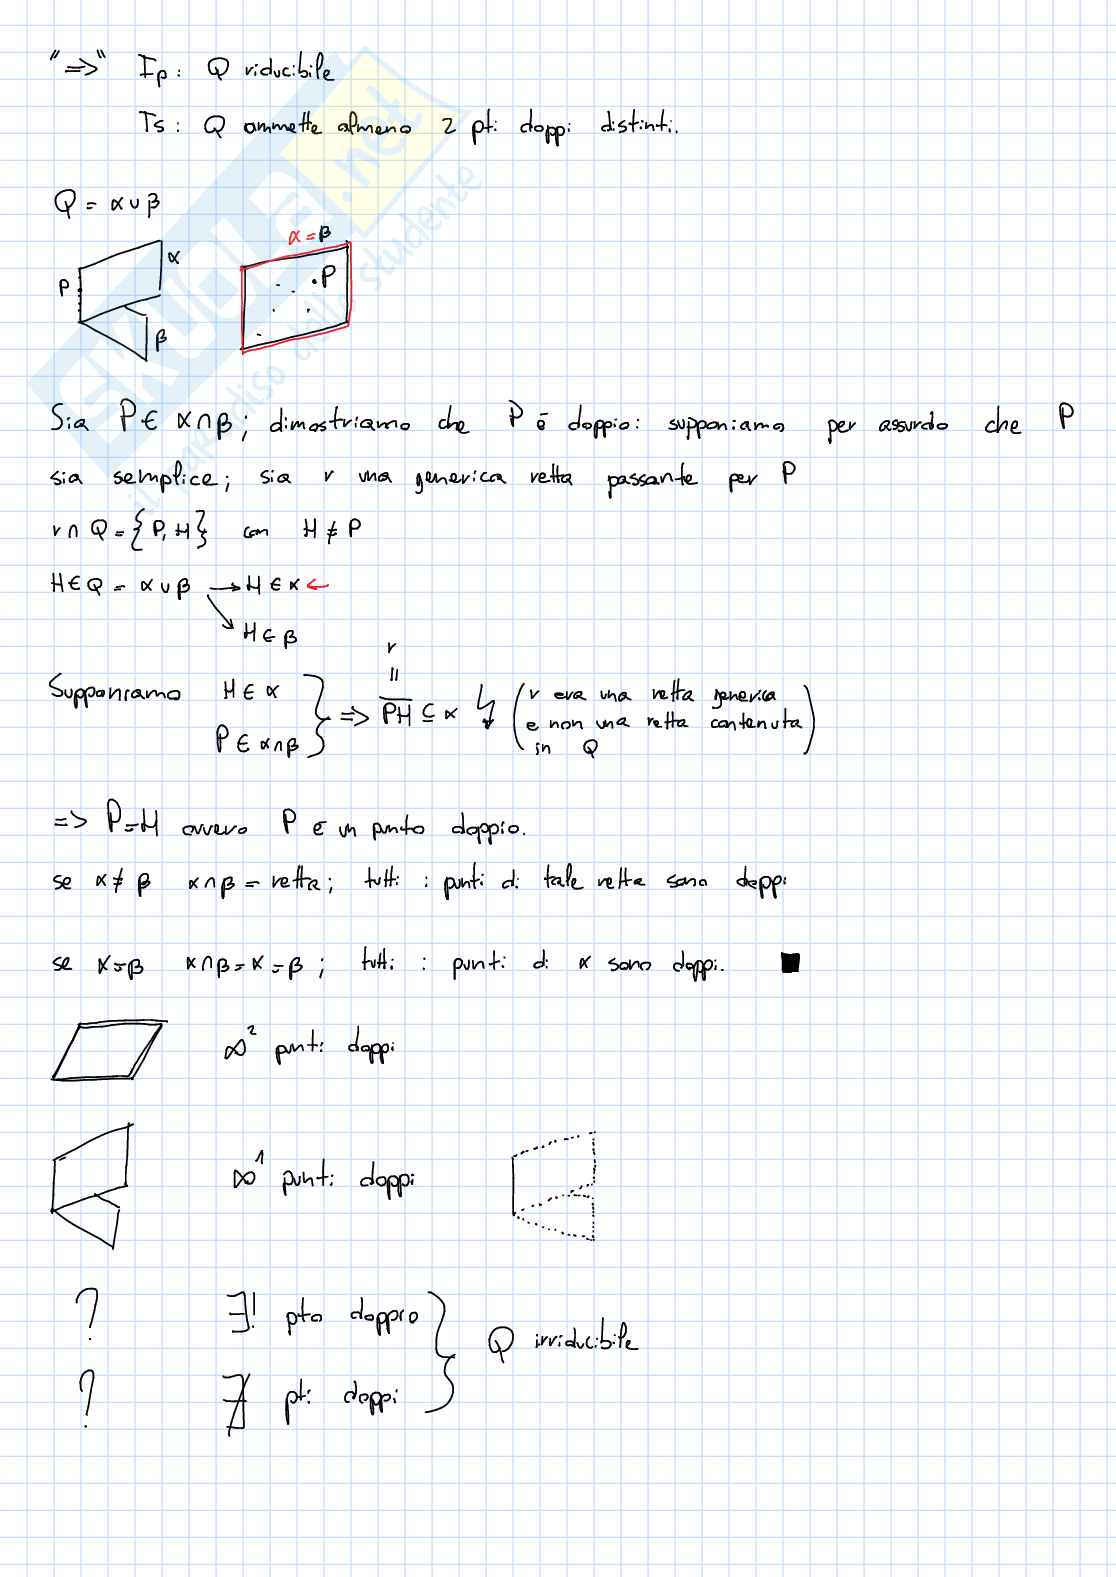 "=>" Ip: Q riducibile
Ts: Q ammette almeno 2 pti doppi distinti.
Q = α ∪ β
α = β
P α β
•P
Sia P ∈ α ∩ β; dimostriamo che P è doppio: supponiamo per assurdo che P
sia semplice; sia r una generica retta passante per P
r ∩ Q = {P, H} con H ≠ P
H ∈ Q = α ∪ β → H ∈ α ←
↘ H ∈ β
r
||
Supponiamo H ∈ α } => PH ⊆ α ↯ (r era una retta generica
P ∈ α ∩ β e non una retta contenuta
in Q)
=> P = H ovvero P è un punto doppio.
se α ≠ β α ∩ β = retta; tutti i punti di tale retta sono doppi
se α = β α ∩ β = α = β; tutti i punti di α sono doppi. ■
∞² punti doppi
∞¹ punti doppi
? ∃! pto doppio } Q irriducibile
? ∄ pti doppi
SKUOLA.net